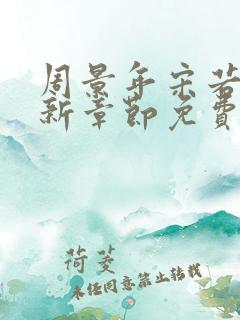 周景年宋若
新章節免費
荷菱
未经同意禁止转载